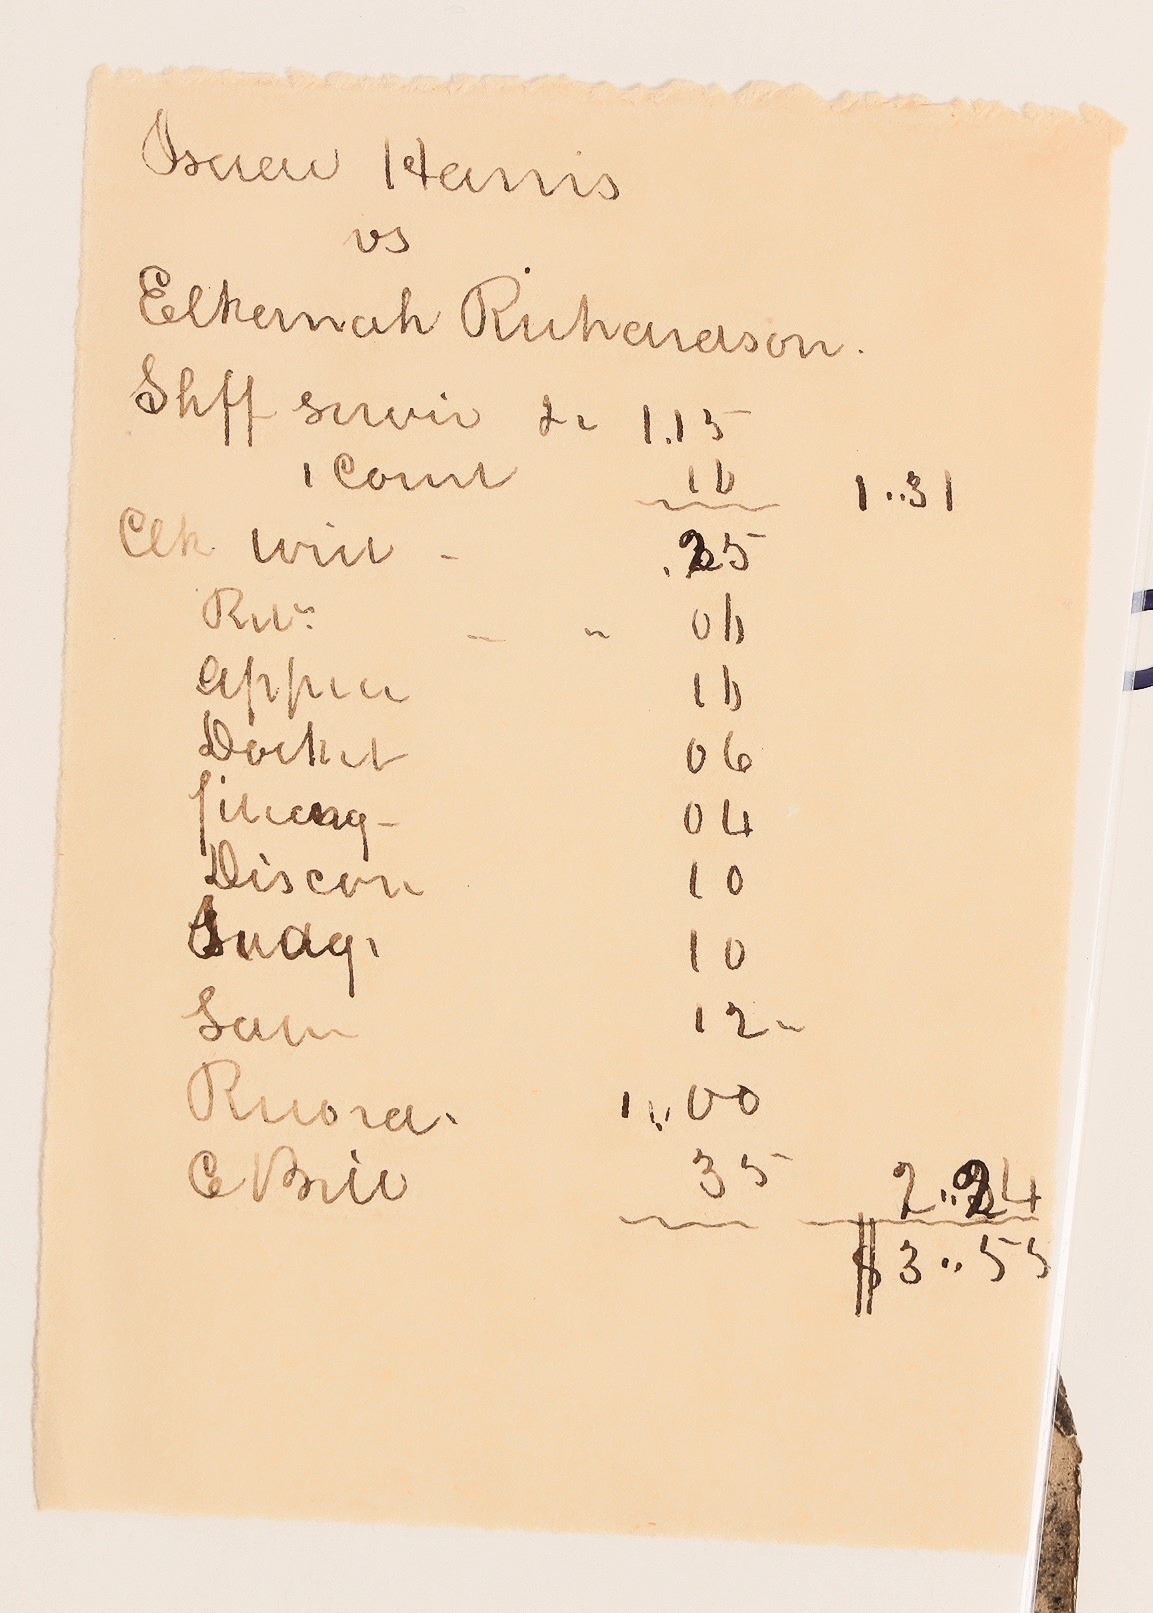 Israel Harris
vs
Elkernah Richardson.
Shff servic 2c 1.15
1 Comt 16 1..31
Clk writ - .25
Ret: 06
appea 16
Docket 06
fileang - 04
Discon 10
Judg. 10
Sam 12
Record. 1..00
C Bill 35 2..24
$3..55